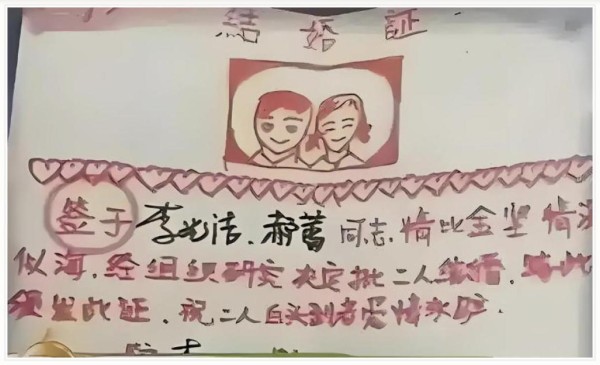 結婚証
签于李光洁、郝蕾同志,情比金坚 情深
似海,经组织研究决定批二人结婚,特此
颁发此证,祝二人白头到老爱情永